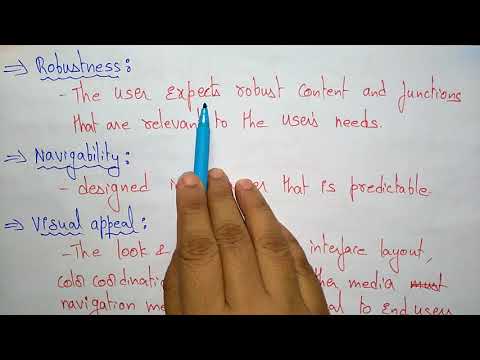 ⇒ Robustness:
- The user expects robust content and functions
that are relevant to the users needs.
⇒ Navigability:
- designed that is predictable
⇒ Visual appeal:
- The look & interface layout,
color media must
navigation to End users